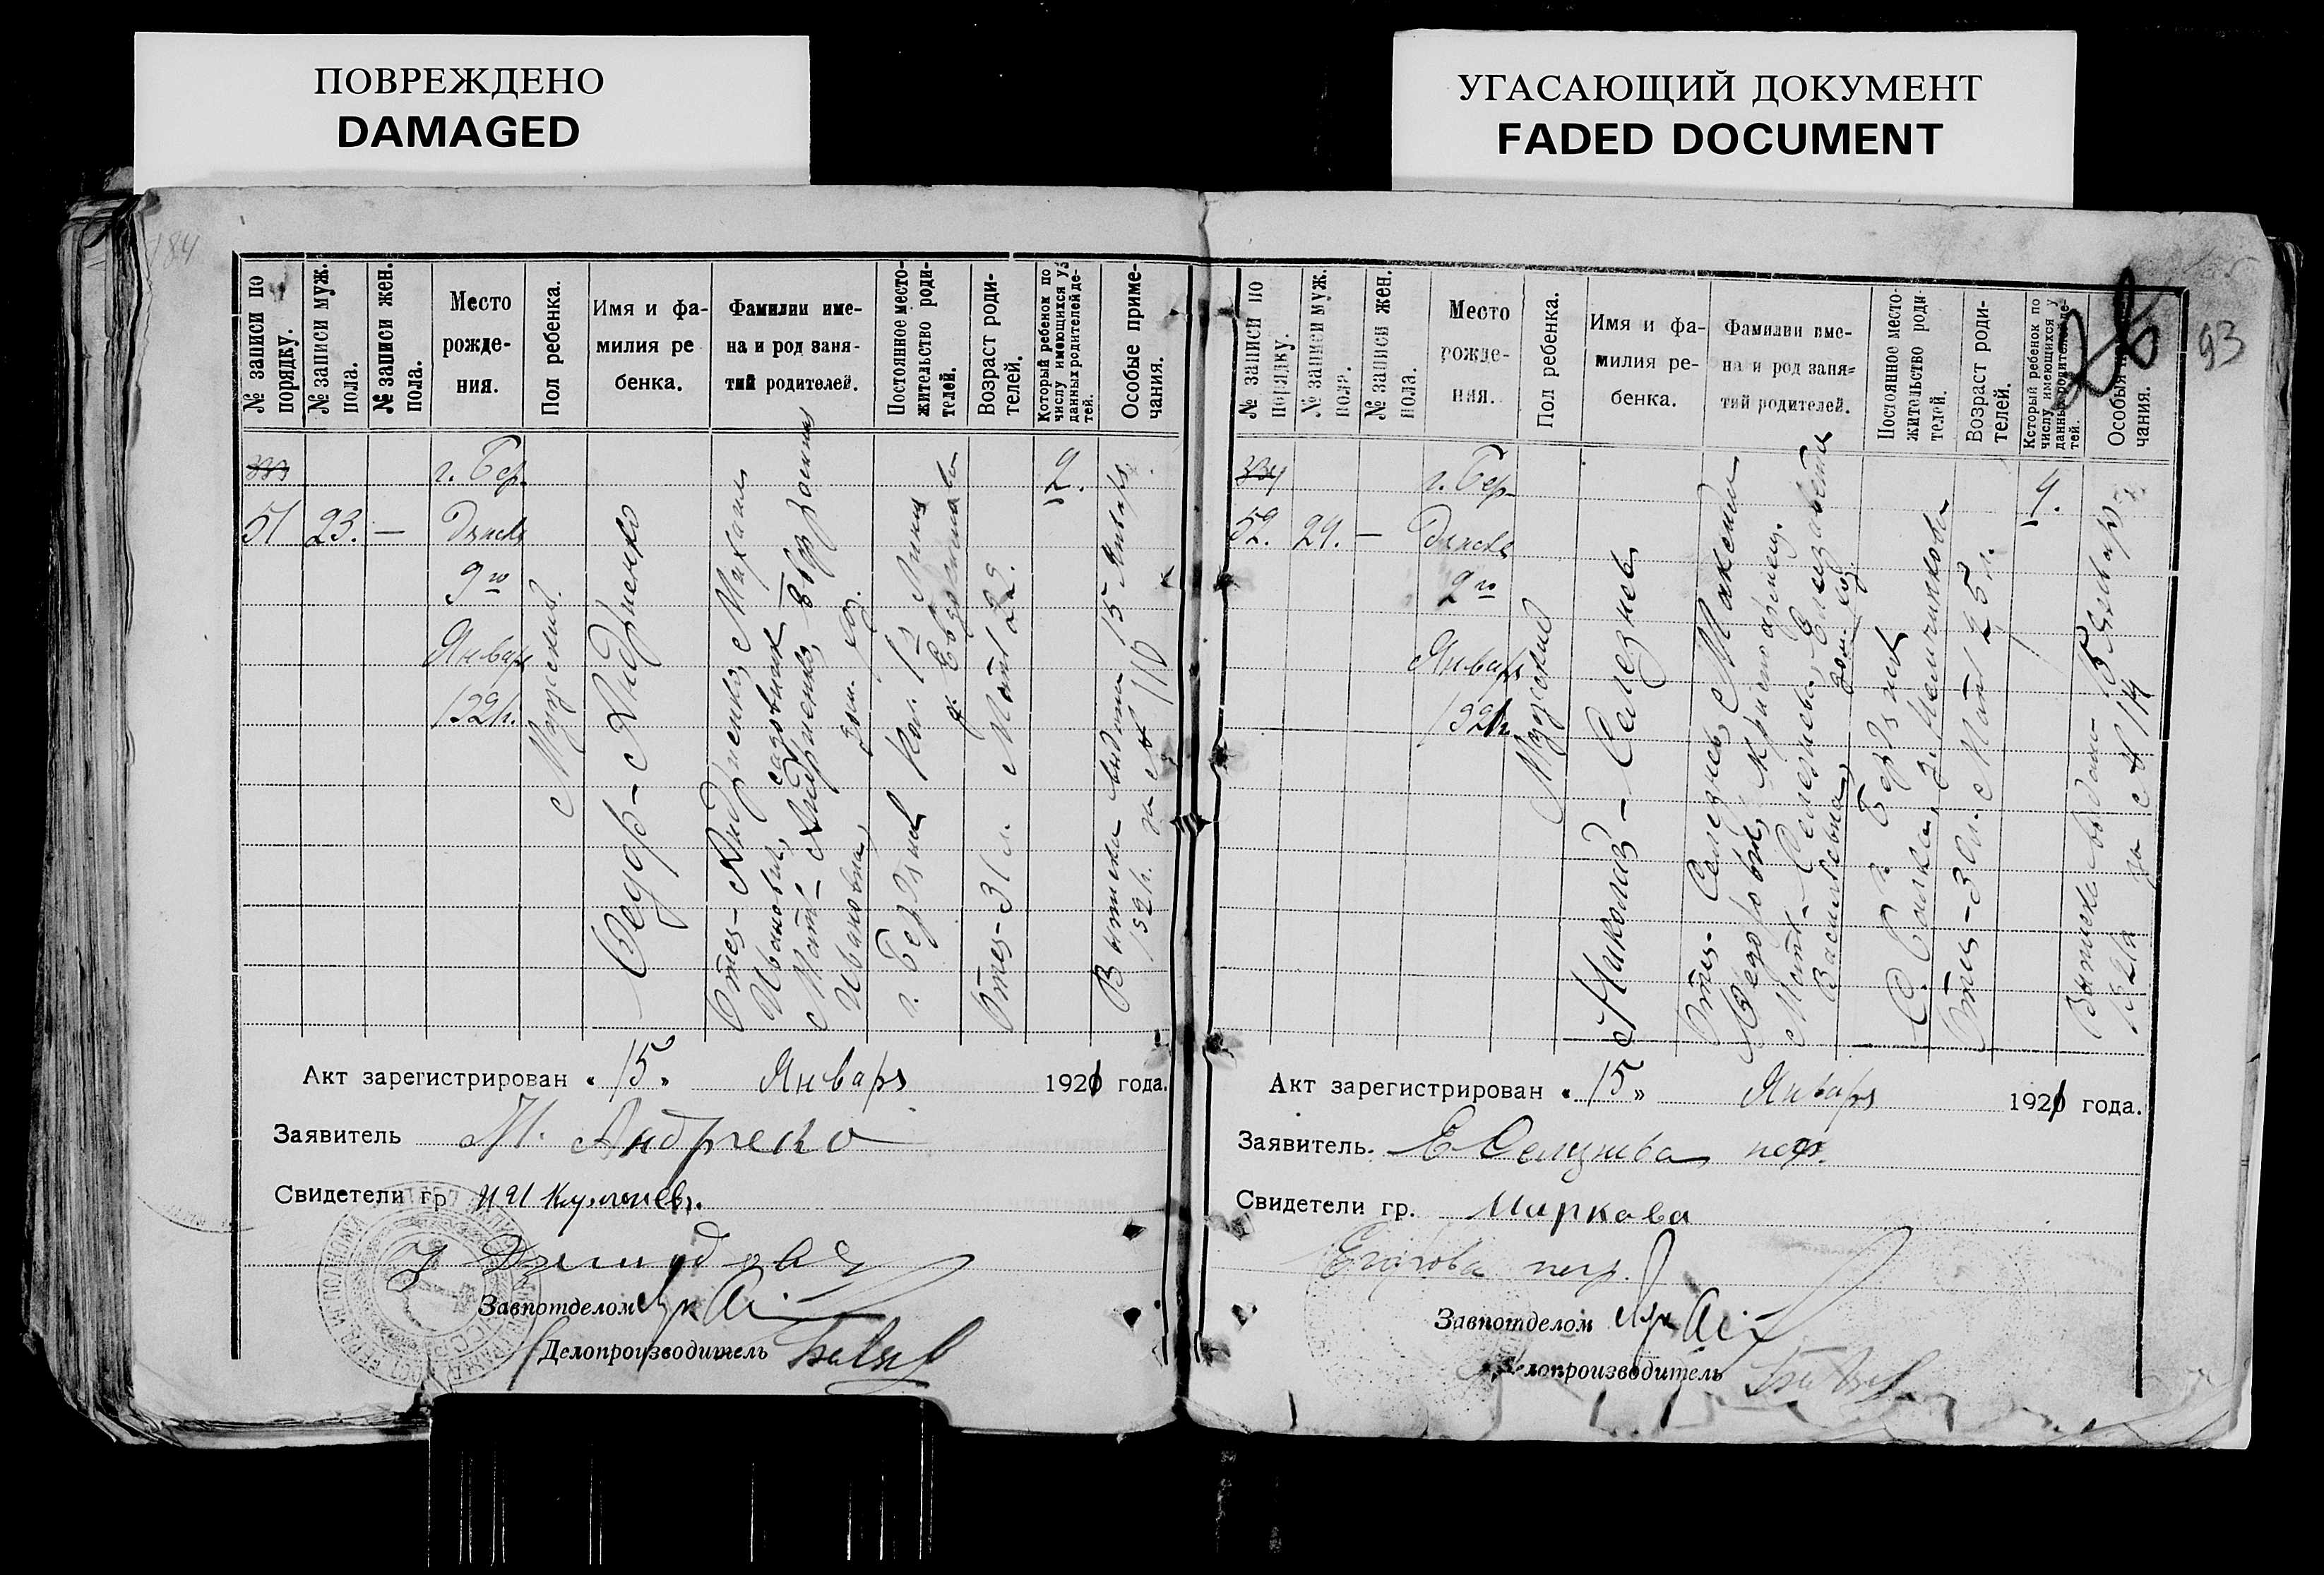 ПОВРЕЖДЕНО
DAMAGED
УГАСАЮЩИЙ ДОКУМЕНТ
FADED DOCUMENT
184
№ записи по
порядку.
№ записи муж.
пола.
№ записи жен.
пола.
Место
рожде-
ния.
Пол ребенка.
Имя и фа-
милия ре
бенка.
Фамилии име-
на и род заня-
тий родителей.
Постоянное место-
жительство роди-
телей.
Возраст роди-
телей.
Который ребенок по
числу имеющихся у
данных родителей де-
тей.
Особые приме-
чания.
333
51
23.
—
г. Бер-
дянск
9го
Января
1921г.
Мужской.
Федор – Андриенко
Отец – Андриенко Михаил
Иванович, садовник
Мать – Андриенко
Ивановна, дом. хоз.
г. Бердянск
Отец – 31 л. Мать 29.
2.
Выписка выдана 15 Января
1921г. за № 110
Акт зарегистрирован « 15 » Января 1921 года.
Заявитель М. Андриенко
Свидетели гр.
Завпотделом
Делопроизводитель
26
93
№ записи по
порядку.
№ записи муж.
пола.
№ записи жен.
пола.
Место
рожде-
ния.
Пол ребенка.
Имя и фа-
милия ре-
бенка.
Фамилии име-
на и род заня-
тий родителей.
Постоянное место-
жительство роди-
телей.
Возраст роди-
телей.
Который ребенок по
числу имеющихся у
данных родителей де-
тей.
Особыя
чания.
334
52.
24.
—
г. Бер-
дянск
2го
Января
1921г.
Мужской
Николай – Селезнев
Отец – Селезнев Максим
Федорович,
Мать – Селезнева Елизавета
Васильевна, дом. хоз.
Бердянск
Отец – 30 л. Мать 25 л.
4.
Выписка выдана 15 Января
1921г за № 114
Акт зарегистрирован « 15 » Января 1921 года.
Заявитель. Е Селезнева негр.
Свидетели гр. Маркова
Егорова негр.
Завпотделом
Делопроизводитель